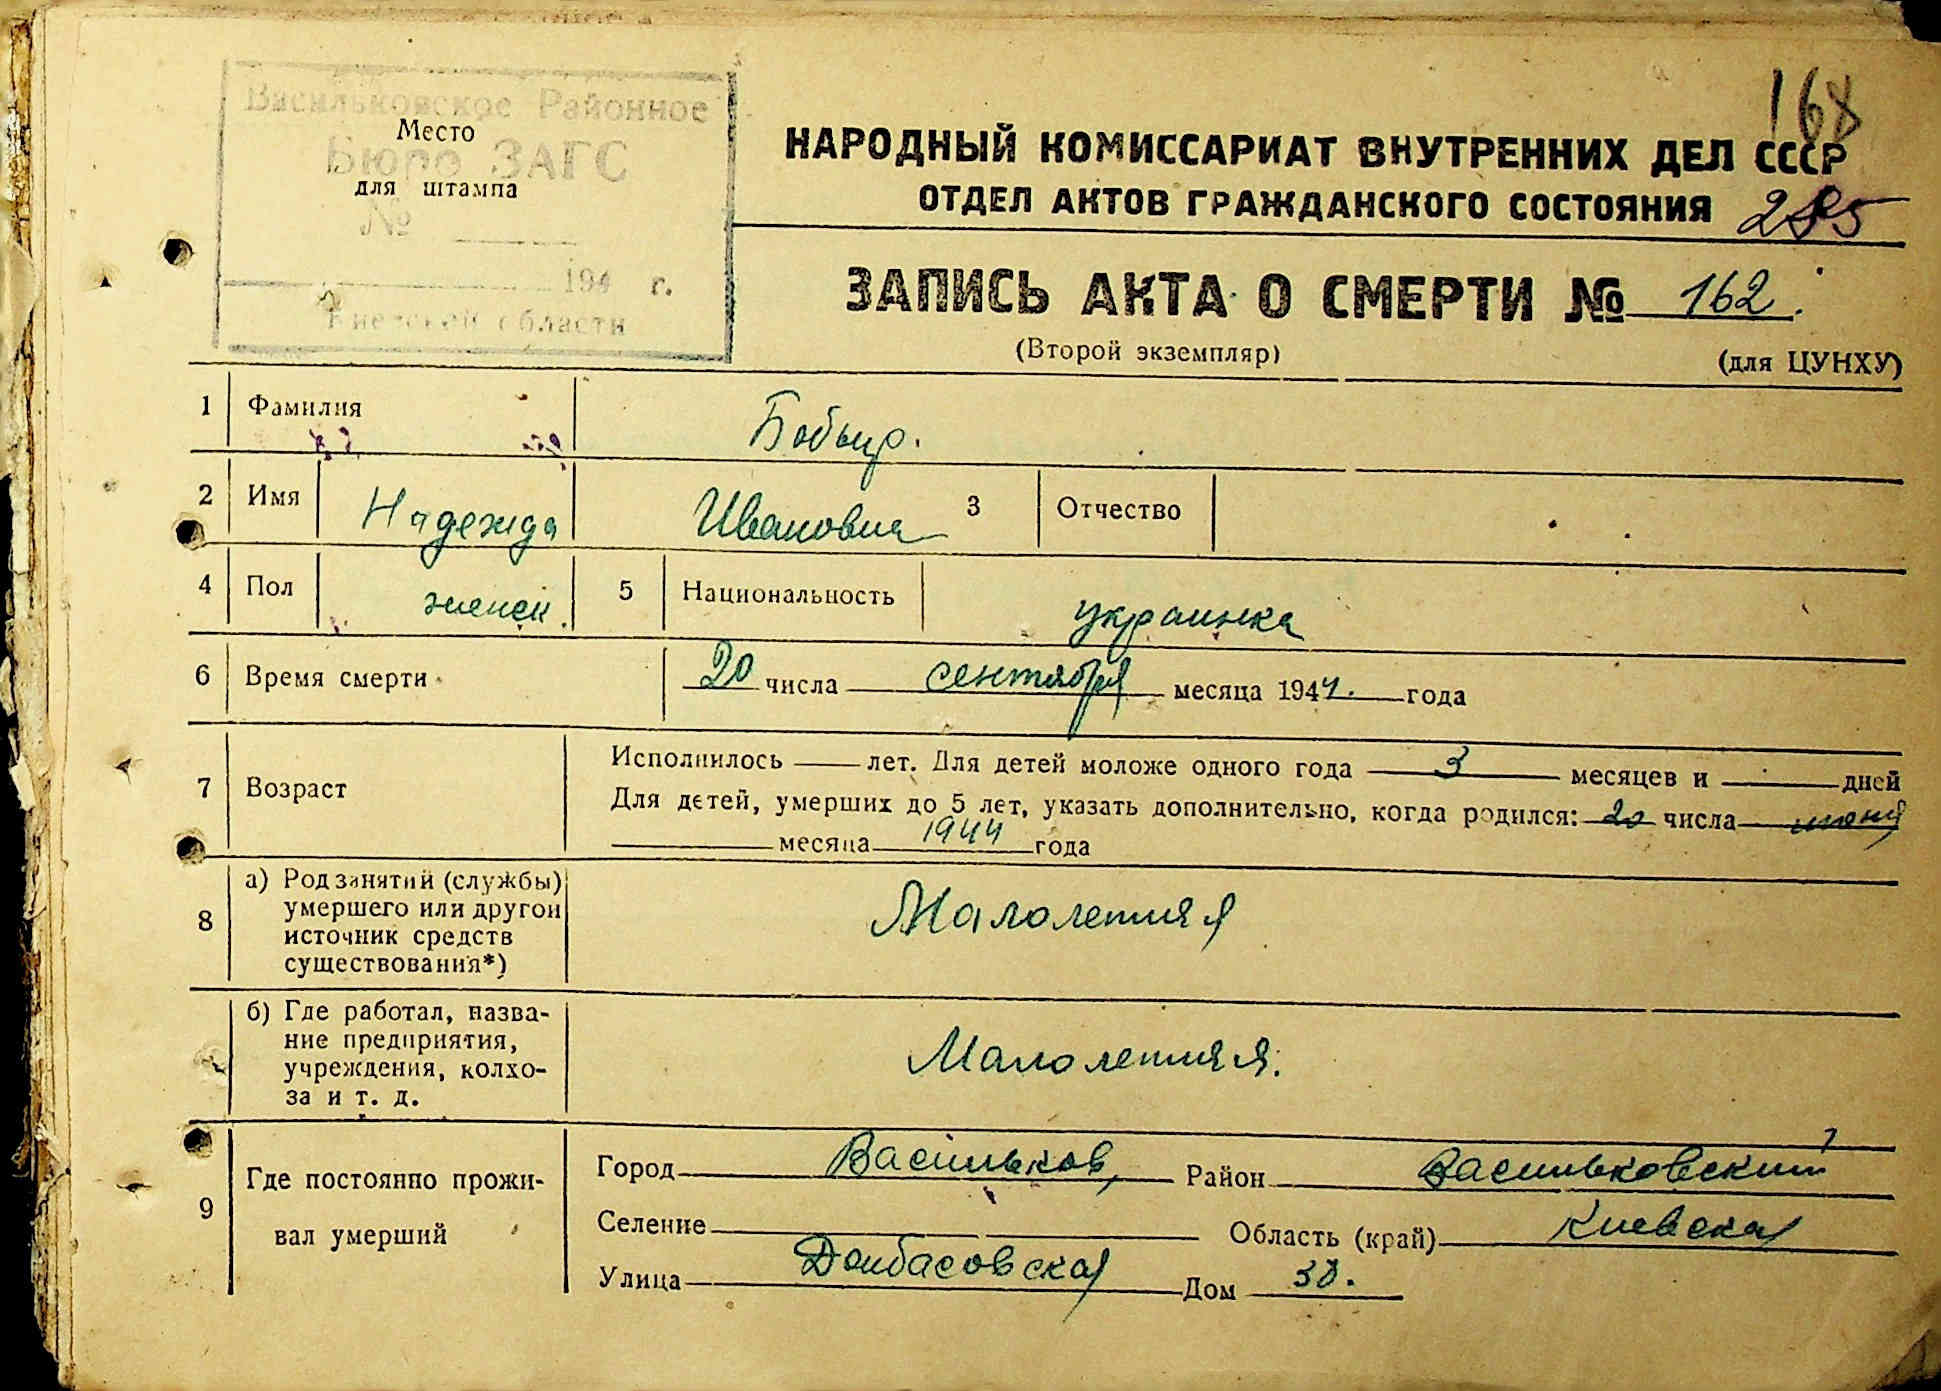 168
Васильковское Районное
Место
Бюро ЗАГС
для штампа
№
194 г.
Киевской области
НАРОДНЫЙ КОМИССАРИАТ ВНУТРЕННИХ ДЕЛ СССР
ОТДЕЛ АКТОВ ГРАЖДАНСКОГО СОСТОЯНИЯ
ЗАПИСЬ АКТА О СМЕРТИ № 162.
(Второй экземпляр)
(для ЦУНХУ)
1 Фамилия Бобыр.
2 Имя Надежда Ивановна 3 Отчество
4 Пол женск. 5 Национальность украинка
6 Время смерти 20 числа сентября месяца 1944. года
7 Возраст Исполнилось — лет. Для детей моложе одного года 3 месяцев и — дней
Для детей, умерших до 5 лет, указать дополнительно, когда родился: 20 числа июня
месяца 1944 года
8 а) Род занятий (службы)
умершего или другой
источник средств
существования*)
Малолетняя
б) Где работал, назва-
ние предприятия,
учреждения, колхо-
за и т. д.
Малолетняя.
9 Где постоянно прожи-
вал умерший
Город Васильков, Район Васильковский
Селение Область (край) Киевская
Улица Донбасовская Дом 30.